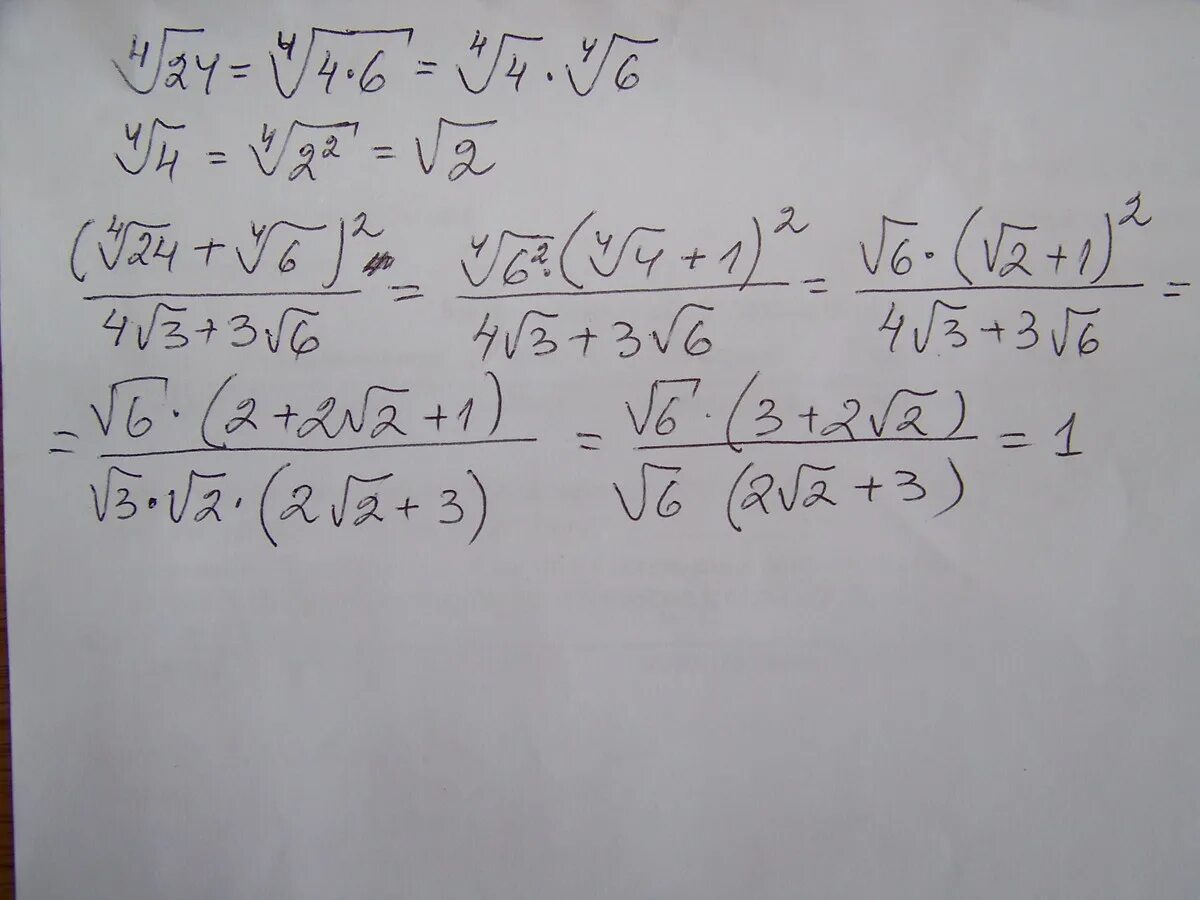 ⁴√24 = ⁴√(4·6) = ⁴√4 · ⁴√6
⁴√4 = ⁴√(2²) = √2
(⁴√24 + ⁴√6)² / (4√3 + 3√6) = ⁴√(6²) · (⁴√4 + 1)² / (4√3 + 3√6) = √6 · (√2 + 1)² / (4√3 + 3√6) =
= √6 · (2 + 2√2 + 1) / (√3 · √2 · (2√2 + 3)) = √6 · (3 + 2√2) / (√6 (2√2 + 3)) = 1